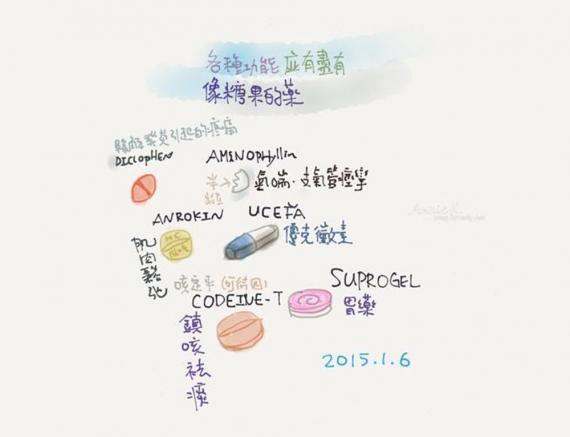 各種功能 应有盡有
像糖果的藥
引起的疼痛
DICLOPHEN
AMINOPHYllin
半
氣喘·支氣管痙攣
ANROKIN
UCEFA
優克黴素
肌肉鬆弛
咳定平 (可待因)
CODEINE-T
SUPROGEL
胃藥
鎮咳祛痰
2015.1.6